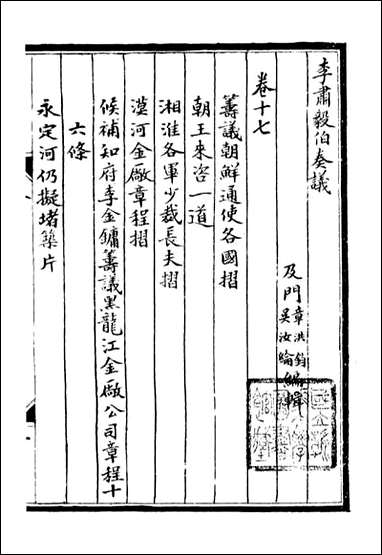 李肅毅伯奏議
及門章洪鈞吳汝綸編輯
卷十七
籌議朝鮮通使各國摺
朝王來咨一道
湘淮各軍少裁長夫摺
漠河金廠章程摺
候補知府李金鏞籌議黑龍江金廠公司章程十
六條
永定河仍擬堵築片